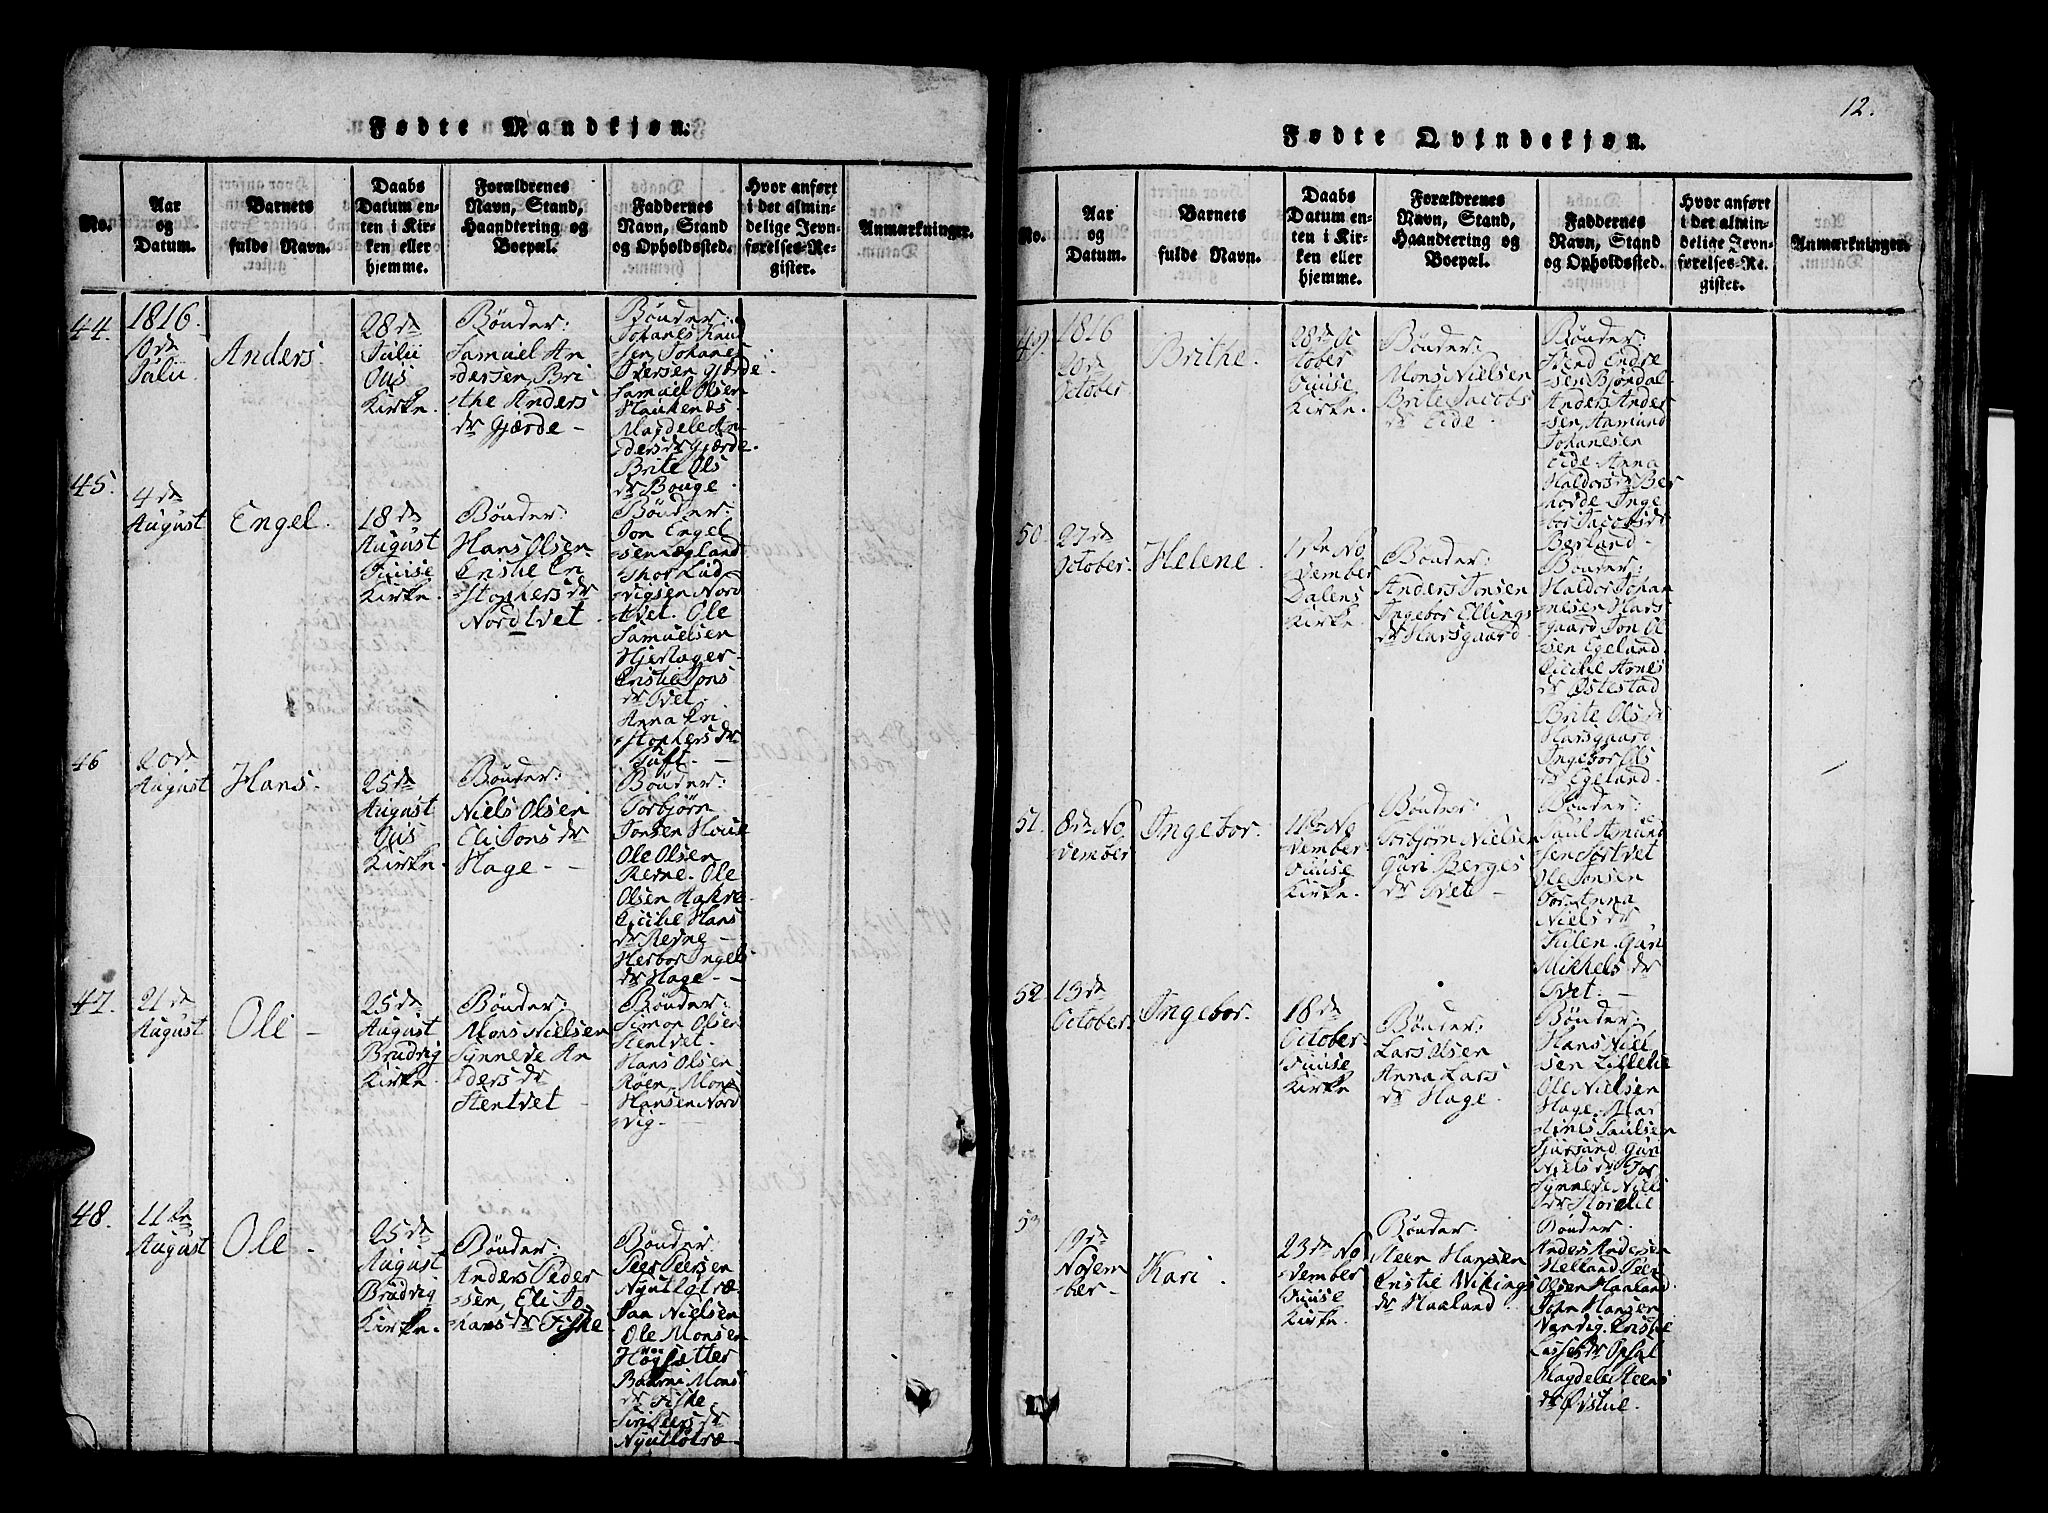 Fødte Mandkjøn.
No.
Aar
og
Datum.
Barnets
fulde Navn.
Daabs
Datum en-
ten i Kir-
ken eller
hjemme.
Forældrenes
Navn, Stand,
Haandtering og
Boepæl.
Faddernes
Navn, Stand
og Opholdssted.
Hvor anført
i det almin-
delige Jevn-
førelses-Re-
gister.
Anmærkninger.
44.
1816.
10de
Julii
Anders.
28de
Julii
Ous
Kirke.
Bønder:
Samuel An
-dersen, Bri
-the Anders
dr Gjærde -
Bønder:
Johanes Knu
-sen, Johanes
Iversen Gjærde
Samuel Olsen
Haukenæs.
Magdele An
-ders dr Gjærde.
Brite Ols
dr Bouge -
45.
4de
August
Engel.
18de
August
Fuuse
Kirke.
Bønder:
Hans Olsen
Cristie Cri
-stophers dr
Nordtvet.
Bønder:
Jon Engel
-sen Ægland
Thor Lud
-vigsen Nord
-tvet. Ole
Samuelsen
Hjertager
Cristie Jons
dr Tvet.
Anna Cri
-stophers dr
Tuft. -
46
20de
August
Hans.
25de
August
Ous
Kirke.
Bønder:
Niels Olsen
Eli Jons dr
Hage - -
Bønder:
Torbjørn
Jonsen House
Ole Olsen
Revne. Ole
Olsen Aakre
Cicilie Hans
dr Revne -
Herbor Ingels
dr Hage - -
47.
21de
August
Ole -
25de
August
Brudvig
Kirke.
Bønder:
Mons Nielsen
Synneve An
-ders dr
Stentvet -
Bønder:
Simon Olsen
Stentvet.
Hans Olsen
Røen, Mons
Hansen Nord
-vig -
48.
11te
August
Ole -
25de
August
Brudvig
Kirke.
Bønder:
Anders Peder
-sen, Eli Jo
-hans dr Fiske
Bønder:
Peer Peersen
Nyutlotræ
Jan Nielsen
Ole Monsen
Høysætter
Baarni Mons
dr Fiske
Siri Peers dr
Nyutlotræ -
12.
Fødte Qvindekjøn.
No.
Aar
og
Datum.
Barnets
fulde Navn.
Daabs
Datum en-
ten i Kir-
ken eller
hjemme.
Forældrenes
Navn, Stand,
Haandtering og
Boepæl.
Faddernes
Navn, Stand
og Opholdssted.
Hvor anført
i det almin-
delige Jevn-
førelses-Re-
gister.
Anmærkninger.
49.
1816
20de
October
Brithe.
28de Oc
-tober
Fuuse
Kirke.
Bønder:
Mons Nielsen
Brite Jacobs
dr Eide -
Bønder:
Svend Endre
-sen Bjørdal
Anders Ander
-sen, Aamund
Johanesen
Eide. Anna
Haldors dr Ber
-hovde. Inge
-bor Jacobs dr
Berland -
50.
27de
October.
Helene.
17de No
-vember
Dalens
Kirke.
Bønder:
Anders Jonsen
Ingebor Ellings
dr Harsgaard.
Bønder:
Haldor Johan
-nesen Hars
-gaard, Jon Ol
-sen Egeland.
Cicilie Arnes
dr Østestad
Brite Ols dr
Harsgaard
Ingebor Ols
dr Egeland.
51.
8de No
-vember
Ingebor.
11te No
-vember
Fuuse
Kirke.
Bønder:
Torbjørn Nielsen
Guri Berges
dr Tvet -
Bønder:
Paul Amund
-sen Sørtvet
Ole Jonsen
Tor. Anna
Niels dr
Kilen. Guri
Mikkels dr
Tvet. -
52.
13de
October.
Ingebor.
18de
October
Fuuse
Kirke
Bønder:
Lars Olsen
Anna Lars
dr Hage.
Bønder:
Hans Niel
-sen Lillelie
Ole Nielsen
Hage. Mar
-tines Paulsen
Sjursand Guri
Niels dr Tor
Synneve Niels
dr Storelie
53
19de
Novem
-ber -
Kari.
23de No
-vember
Fuuse
Kirke.
Bønder:
Steen Hansen
Cristie Vikings
dr Haaland.
Bønder.
Anders Andersen
Helland. Peer
Olsen Haaland
John Hansen
Vendig. Cristie
Lasses dr Opsal
Magdele Steens
dr Øvstuc.